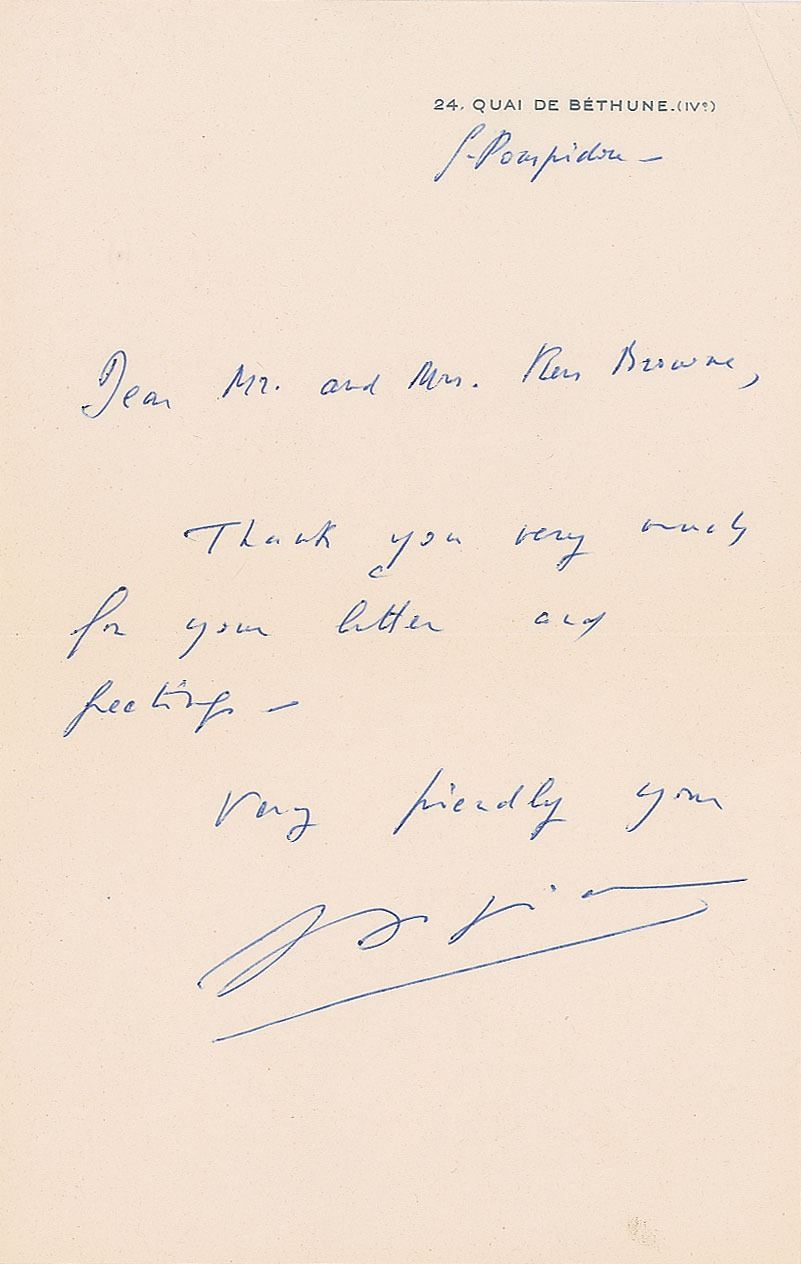 24, QUAI DE BÉTHUNE.(IVᵉ)
G. Pompidou –
Dear Mr. and Mrs. Ken Browne,
Thank you very much
for your letter and
greetings –
Very friendly your